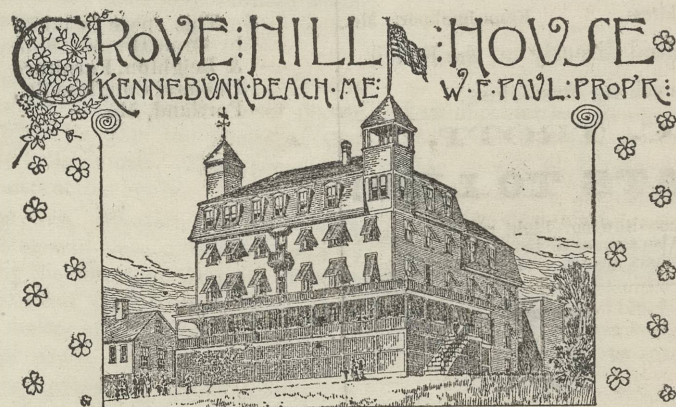 GROVE HILL HOUSE
KENNEBUNK·BEACH·ME: W·F·PAUL:PROP'R: